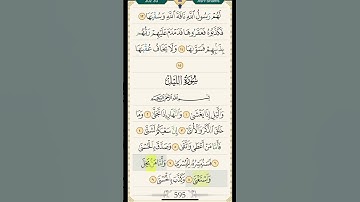 لَهُمْ رَسُولُ ٱللَّهِ نَاقَةَ ٱللَّهِ وَسُقْيَـٰهَا ١٣
فَكَذَّبُوهُ فَعَقَرُوهَا فَدَمْدَمَ عَلَيْهِمْ رَبُّهُم
بِذَنۢبِهِمْ فَسَوَّىٰهَا ١٤ وَلَا يَخَافُ عُقْبَـٰهَا
١٥
سُورَةُ اللَّيْلِ
بِسْمِ ٱللَّهِ ٱلرَّحْمَـٰنِ ٱلرَّحِيمِ
وَٱلَّيْلِ إِذَا يَغْشَىٰ ١ وَٱلنَّهَارِ إِذَا تَجَلَّىٰ ٢ وَمَا
خَلَقَ ٱلذَّكَرَ وَٱلْأُنثَىٰٓ ٣ إِنَّ سَعْيَكُمْ لَشَتَّىٰ ٤
فَأَمَّا مَنْ أَعْطَىٰ وَٱتَّقَىٰ ٥ وَصَدَّقَ بِٱلْحُسْنَىٰ
٦ فَسَنُيَسِّرُهُۥ لِلْيُسْرَىٰ ٧ وَأَمَّا مَنۢ بَخِلَ
وَٱسْتَغْنَىٰ ٨ وَكَذَّبَ بِٱلْحُسْنَىٰ ٩
595